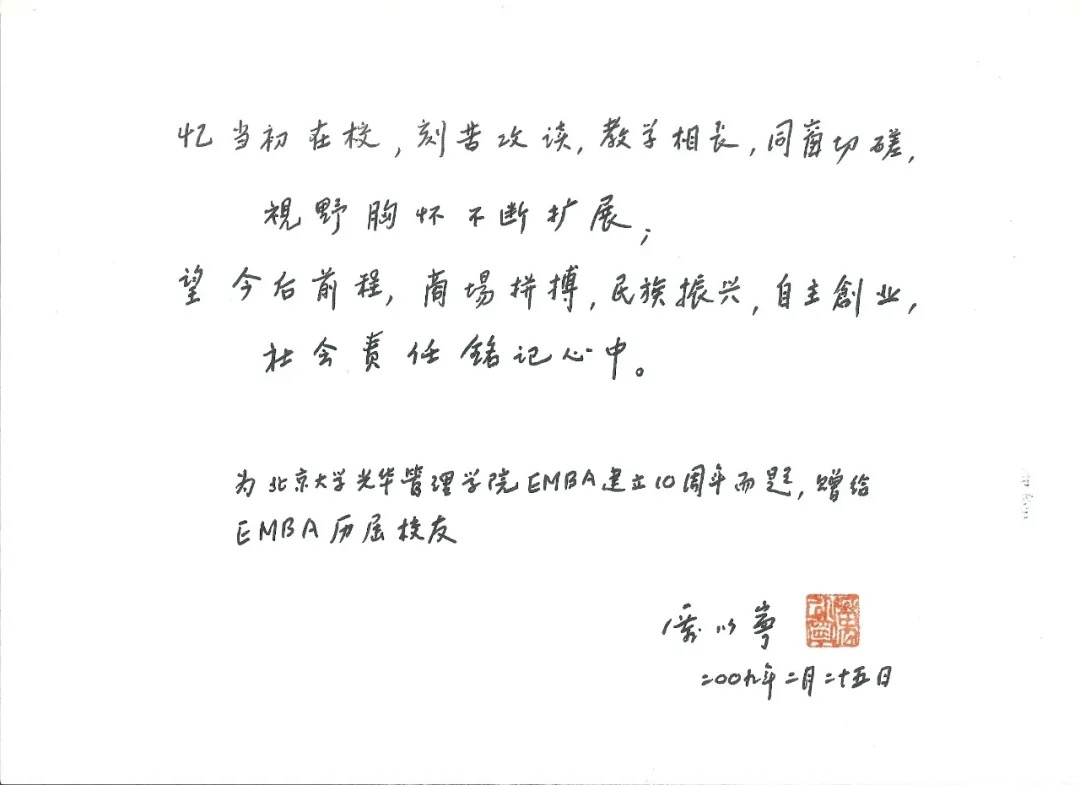 忆当初在校,刻苦攻读,教学相长,同窗切磋,
視野胸怀不断扩展;
望今后前程,商場拼搏,民族振兴,自主創业,
社会責任铭记心中。
为北京大学光华管理学院EMBA建立10周年而题,赠给
EMBA历届校友
厲以寧
二00九年二月二十五日